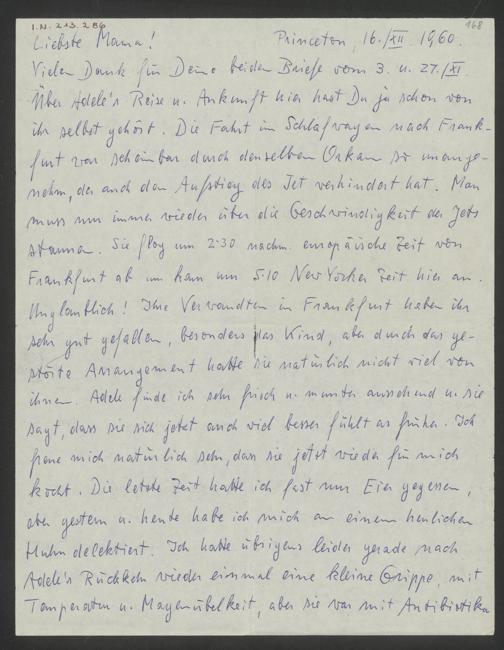 I.N. 213.286
168
Liebste Mama! Princeton, 16./XII. 1960.
Vielen Dank für Deine beiden Briefe vom 3. u. 27./XI.
Über Adele's Reise u. Ankunft hier hast Du ja schon von
ihr selbst gehört. Die Fahrt im Schlafwagen nach Frank-
furt war scheinbar durch denselben Orkan so unange-
nehm, der auch den Aufstieg des Jet verhindert hat. Man
muss nur immer wieder über die Geschwindigkeit der Jets
staunen. Sie flog um 2:30 nachm. europäische Zeit von
Frankfurt ab u. kam um 5:10 New Yorker Zeit hier an.
Unglaublich! Ihre Verwandten in Frankfurt haben ihr
sehr gut gefallen, besonders das Kind, aber durch das ge-
störte Arrangement hatte sie natürlich nicht viel von
ihnen. Adele finde ich sehr frisch u. munter aussehend u. sie
sagt, dass sie sich jetzt auch viel besser fühlt as früher. Ich
freue mich natürlich sehr, dass sie jetzt wieder für mich
kocht. Die letzte Zeit hatte ich fast nur Eier gegessen,
aber gestern u. heute habe ich mich an einem herrlichen
Huhn delektiert. Ich hatte übrigens leider gerade nach
Adele's Rückkehr wieder einmal eine kleine Grippe, mit
Temperatur u. Magenübelkeit, aber sie war mit Antibiotika